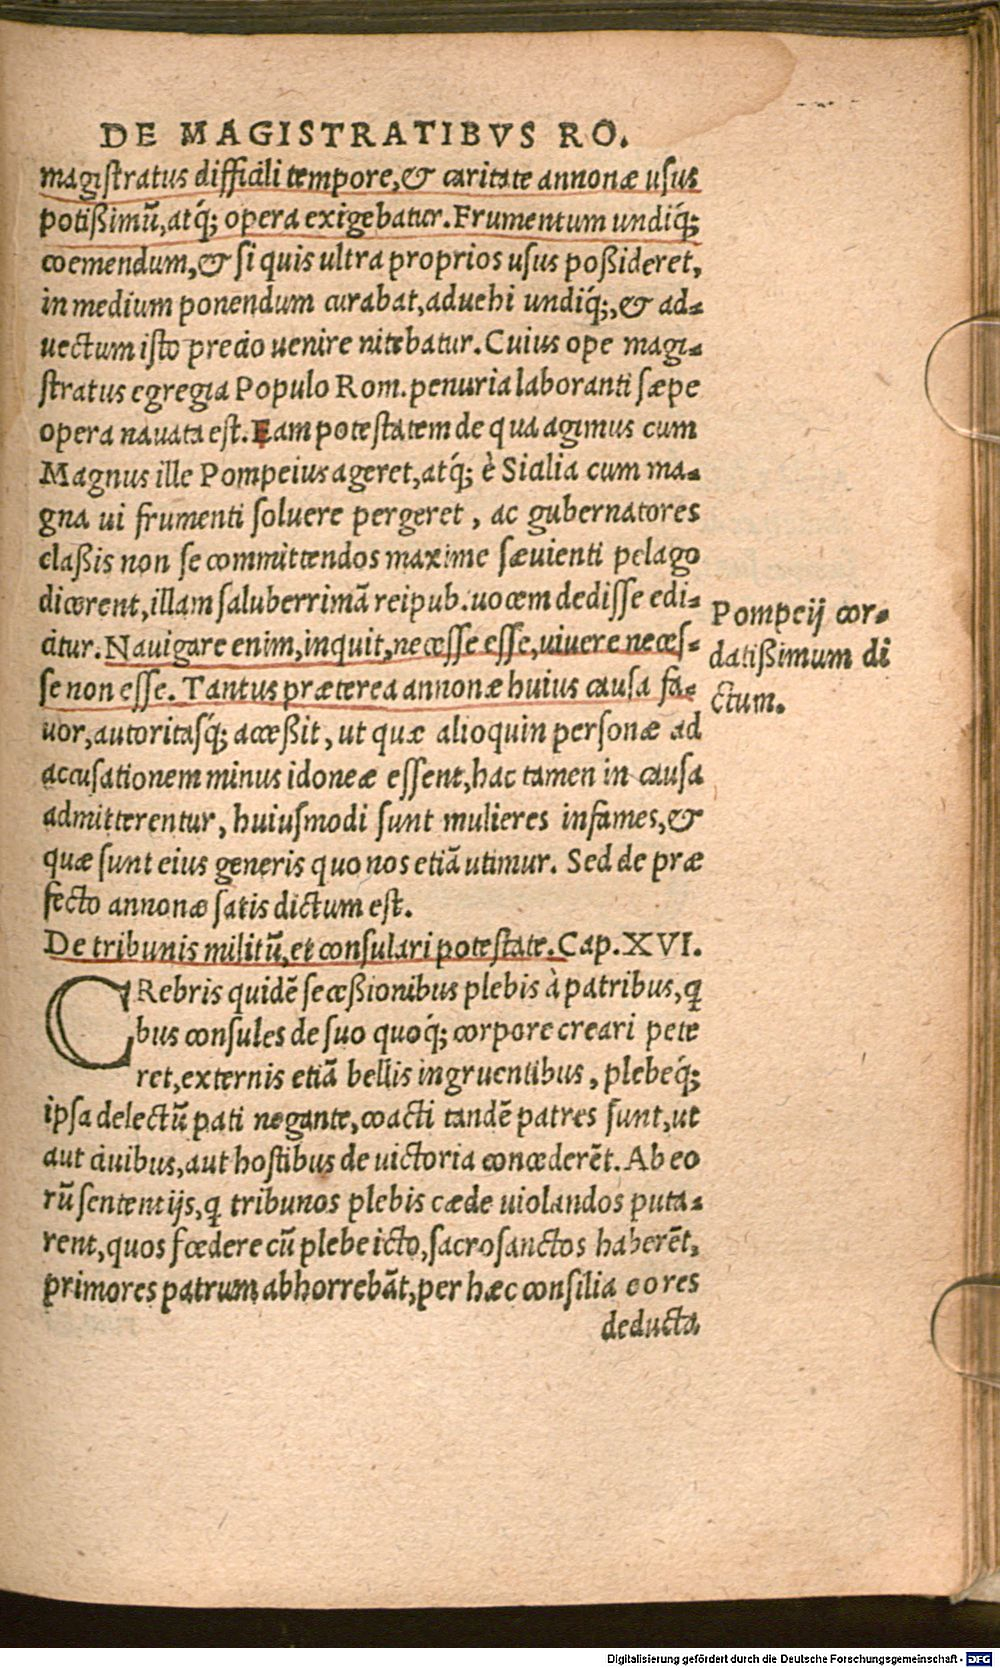 DE MAGISTRATIBVS RO.
magiſtratus difficili tempore, & caritate annonæ uſus
potißimũ, atq́; opera exigebatur. Frumentum undiq́;
coemendum, & ſi quis ultra proprios uſus poßideret,
in medium ponendum curabat, aduehi undiq́;, & ad-
uectum iſto precio uenire nitebatur. Cuius ope magi-
ſtratus egregia Populo Rom. penuria laboranti ſæpe
opera nauata eſt. Eam poteſtatem de qua agimus cum
Magnus ille Pompeius ageret, atq́; è Sicilia cum ma-
gna ui frumenti ſoluere pergeret, ac gubernatores
claßis non ſe committendos maxime ſæuienti pelago
dicerent, illam ſaluberrimã reipub. uocem dediſſe edi-
citur. Nauigare enim, inquit, neceſſe eſſe, uiuere neceſ-
ſe non eſſe. Tantus præterea annonæ huius cauſa fa-
uor, autoritasq́; acceßit, ut quæ alioquin perſonæ ad
accuſationem minus idoneæ eſſent, hac tamen in cauſa
admitterentur, huiuſmodi ſunt mulieres infames, &
quæ ſunt eius generis quo nos etiã utimur. Sed de præ
fecto annonæ ſatis dictum eſt.
Pompeij cor-
datißimum di
ctum.
De tribunis militũ, et conſulari poteſtate. Cap. XVI.
CRebris quidẽ ſeceßionibus plebis à patribus, ꝗ
bus conſules de ſuo quoq́; corpore creari pete
ret, externis etiã bellis ingruentibus, plebeq́;
ipſa delectũ pati negante, coacti tandẽ patres ſunt, ut
aut ciuibus, aut hoſtibus de uictoria concederẽt. Ab eo
rũ ſententijs, ꝗ tribunos plebis cæde uiolandos puta-
rent, quos fœdere cũ plebe icto, ſacroſanctos haberẽt,
primores patrum abhorrebãt, per hæc conſilia eo res
deducta
Digitalisierung gefördert durch die Deutsche Forschungsgemeinschaft - DFG